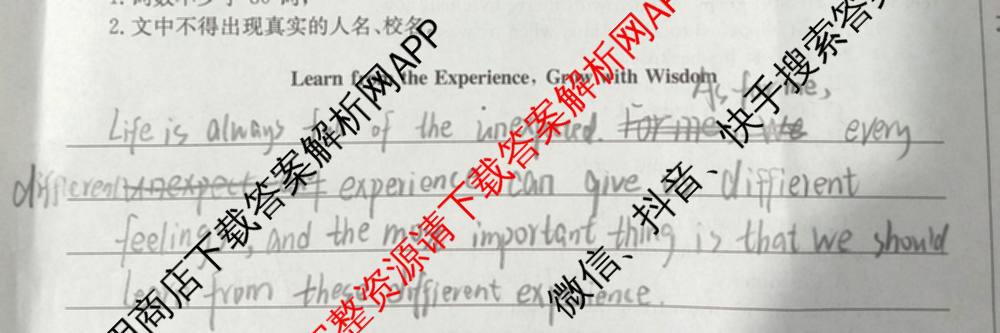 2. 文中不得出现真实的人名、校名
Learn from the Experience, Grow with Wisdom
As for me,
Life is always of the unexpected. For me We every
different unexpect experience can give difficient
feeling, and the most important thing is that we should
Learn from these difficient experience.
用商店下载答案解析网APP
完整资源请下载答案解析网APP
微信、抖音、快手搜索答案